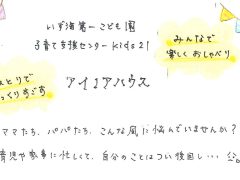 いずみ第一こども園
子育て支援センターkids21
みんなで
楽しくおしゃべり
アイリスハウス
ひとりで
ゆっくりすごす
ママたち、パパたち、こんな風に悩んでいませんか?
育児や家事に忙しくて、自分のことはつい後回し…